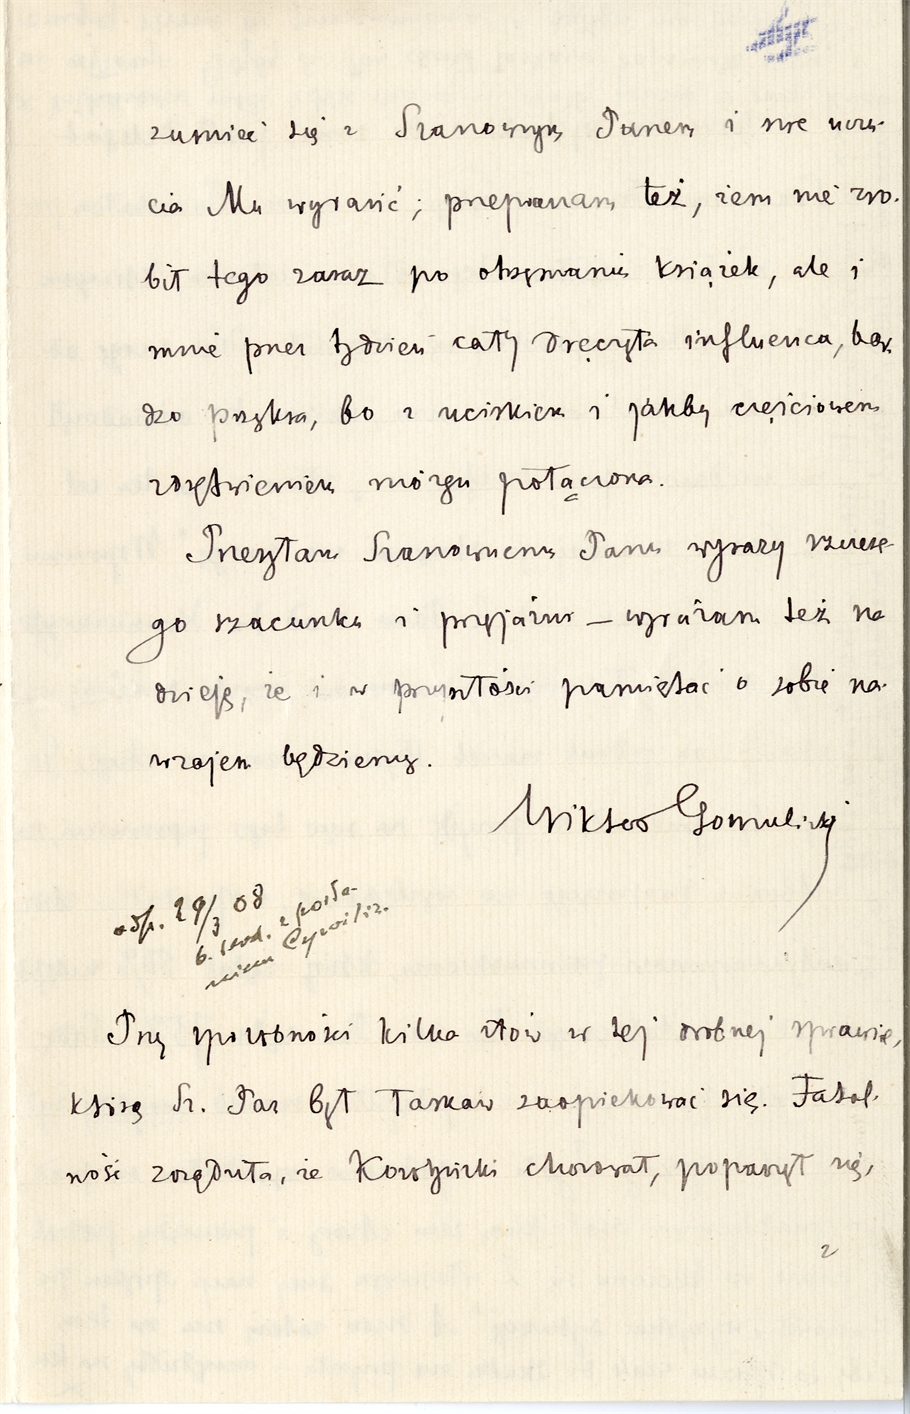 zumieć się z Szanownym Panem i swe uczu-
cia Mu wyrazić; przepraszam też, żem nie zro-
bił tego zaraz po otrzymaniu książek, ale i
mnie przez tydzień cały dręczyła influenca, bar-
dzo przykra, bo z uciskiem i jakby częściowem
zdrętwieniem mózgu połączona.
Przesyłam Szanownemu Panu wyrazy szczere-
go szacunku i przyjaźni — wyrażam też na
dzieję, że i w przyszłości pamiętać o sobie na-
wzajem będziemy.
Wiktor Gomulicki
odp. 29/3 08
Przy sposobności kilka słów w tej drobnej sprawie,
którą Sz. Pan był łaskaw zaopiekować się. Fatal-
ność zrządziła, że Korotyński chorował, poprawił się,
2